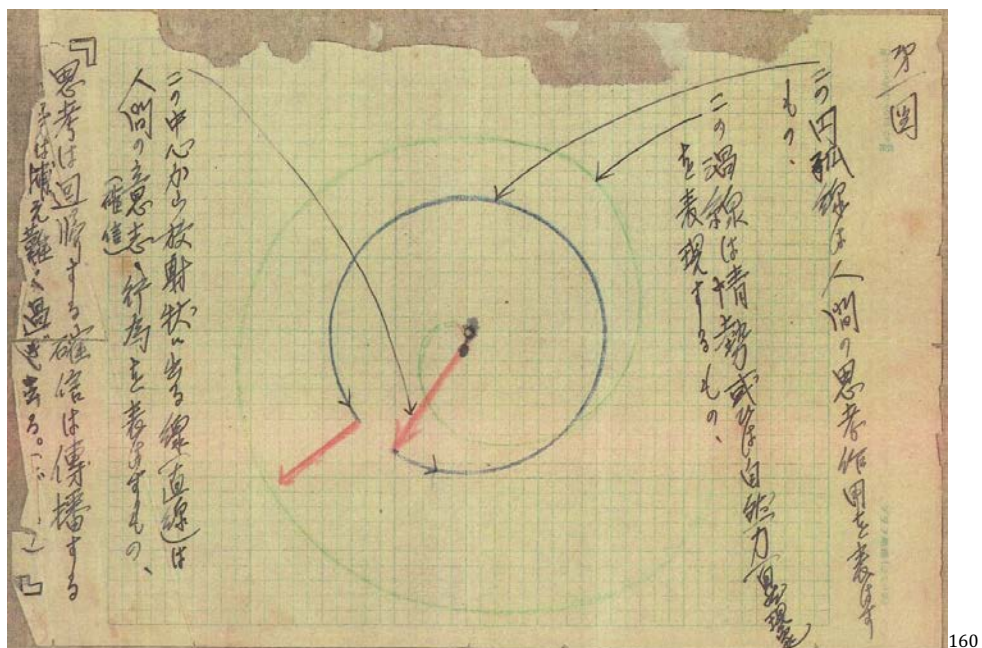 第一図
この円弧線は人間の思考作用を表はす
もの、
この渦線は情勢或ひは自然力
を表現するもの、
この中心から放射状に出る線(直線)は
人間の意志、行為を表はすもの、
(確信)
『思考は回帰する確信は傳播する
は捕え難く過ぎ去る。……』
160